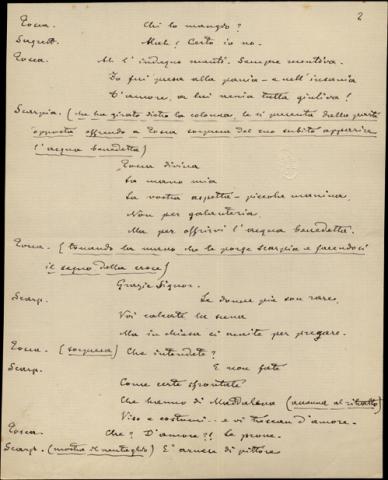 2
Tosca. Chi lo mandò?
Sagrest. Mah! Certo io no.
Tosca. Ah l'indegno mentì. Sempre mentiva.
Io fui presa alla pania - e nell'insania
D'amore, a lui venia tutta giuliva!
Scarpia. (che ha girato dietro la colonna, le si presenta dalla parte
opposta offrendo a Tosca sorpresa del suo subito apparire
l'acqua benedetta)
Tosca divina
La mano mia
La vostra aspetta - piccola manina,
Non per galanteria,
Ma per offrirvi l'acqua benedetta.
Tosca. (toccando la mano che le porge Scarpia e facendosi
il segno della croce)
Grazie Signor.
Scarp. Le donne pie son rare,
Voi calcate la scena
Ma in chiesa ci venite per pregare.
Tosca (sorpresa) Che intendete?
Scarp. E non fate
Come certe sfrontate
Che hanno di Maddalena (accenna al ritratto)
Viso e costumi.. e vi trescan d'amore.
Tosca. Che? D'amore?! Le prove.
Scarp. (mostra il ventaglio) E' arnese di pittore